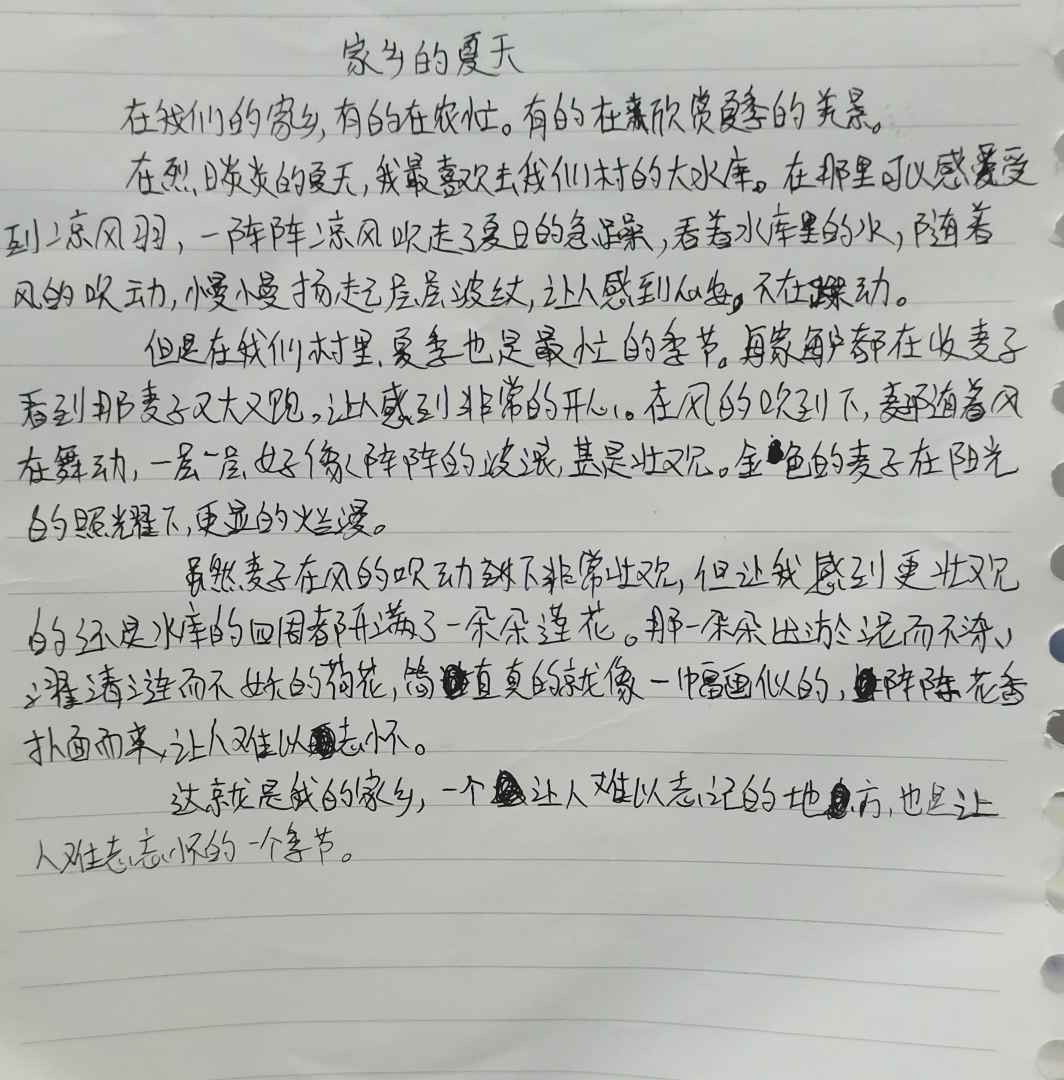 家乡的夏天
在我们的家乡,有的在农忙。有的在来欣赏夏季的美景。
在烈日炎炎的夏天,我最喜欢去我们村的大水库。在那里可以感爱受
到凉风习,一阵阵凉风吹走了夏日的急躁,看着水库里的水,随着
风的吹动,慢慢扬起层层波纹,让人感到心安。不在躁动。
但是在我们村里,夏季也是最忙的季节。每家每户都在收麦子
看到那麦子又大又饱。让人感到非常的开心。在风的吹到下,麦都随着风
在舞动,一层一层,好像阵阵的波浪,甚是壮观。金色的麦子在阳光
的照耀下,更显的烂漫。
虽然麦子在风的吹动下非常壮观,但让我感到更壮观
的还是水库的四周都开满了一朵朵莲花。那一朵朵出淤泥而不染、
濯清涟而不妖的荷花,简直真的就像一幅画似的,阵阵花香
扑面而来,让人难以忘怀。
这就是我的家乡,一个让人难以忘记的地方,也是让
人难忘忘怀的一个季节。